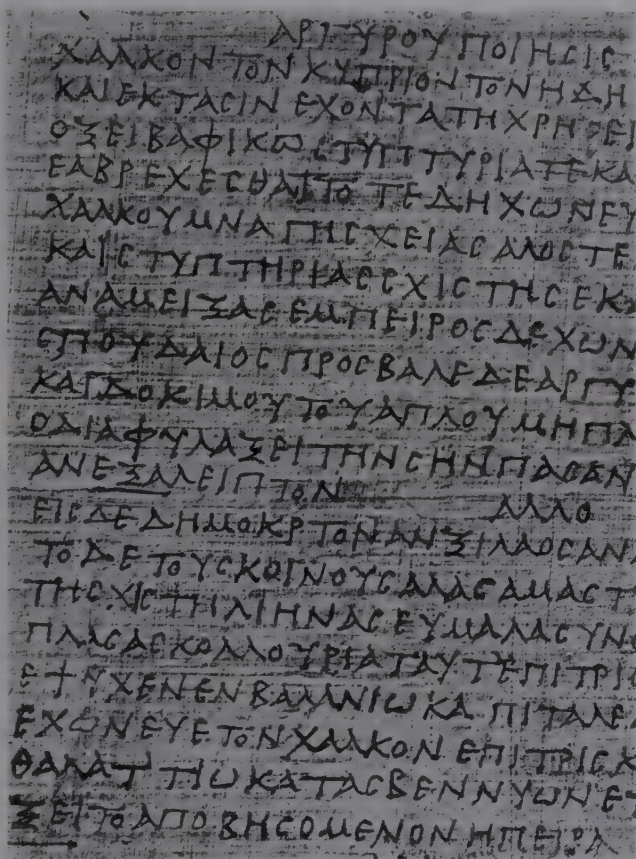 ΑΡΓΥΡΟΥ ΠΟΙΗCΙC
ΧΑΛΚΟΝ ΤΟΝ ΚΥΠΡΙΟΝ ΤΟΝ ΗΔΗ
ΚΑΙ ΕΚΤΑCΙΝ ΕΧΟΝΤΑ ΤΗ ΧΡΗCΕΙ
ΟΞΕΙ ΒΑΦΙΚΩ CΤΥΠΤΥΡΙΑ ΤΕ ΚΑ
ΕΑ ΒΡΕΧΕCΘΑΙ ΤΟ ΤΕ ΔΗ ΧΩΝΕΥ
ΧΑΛΚΟΥ ΜΝΑ ΓΗC ΧΕΙΑC ΑΛΟC ΤΕ
ΚΑΙ CΤΥΠΤΗΡΙΑC CΧΙCΤΗC ΕΚΑ
ΑΝΑΜΕΙΞΑC ΕΜΠΕΙΡΟC ΔΕ ΧΩΝ
CΠΟΥΔΑΙΟC ΠΡΟCΒΑΛΕ ΔΕ ΑΡΓΥ
ΚΑΙ ΔΟΚΙΜΟΥ ΤΟΥ ΑΠΛΟΥ ΜΗ ΠΛ
Ο ΔΙΑΦΥΛΑΞΕΙ ΤΗΝ CΗΝ ΠΑCΑΝ
ΑΝΕΞΑΛΕΙΠΤΟΝ
ΑΛΛΟ
ΕΙC ΔΕ ΔΗΜΟΚΡΤΟΝ ΑΝΞΙΛΑΟC ΑΝΑ
ΤΟΔΕ ΤΟΥC ΚΟΙΝΟΥC ΑΛΑC ΑΜΑ CΤ
ΤΗ CΧΙCΤΗ ΛΙΗΝΑC ΕΥ ΜΑΛΑ CΥΝΟ
ΠΛΑCΑC ΚΟΛΛΟΥΡΙΑ ΤΑΥΤ ΕΠΙ ΤΡΙC
ΕΨΥΧΕΝ ΕΝ ΒΑΛΑΝΙΩ ΚΑ ΠΙΤΑ ΛΕΙ
ΕΧΩΝΕΥΕ ΤΟΝ ΧΑΛΚΟΝ ΕΠΙ ΤΡΙC Κ
ΘΑΛΑΤΤΙΩ ΚΑΤΑCΒΕΝΝΥΩΝ ΕΤ
ΞΕΙ ΤΟ ΑΠΟΒΗCΟΜΕΝΟΝ Η ΠΕΙΡΑ